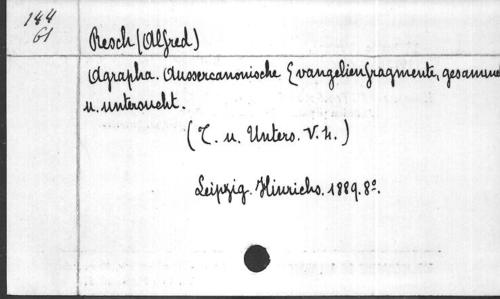 144
61
Resch (Alfred)
Agrapha. Aussercanonische Evangelienfragmente, gesammel
u. untersucht.
(T. u. Unters. V. 4.)
Leipzig. Hinrichs. 1889. 8°.